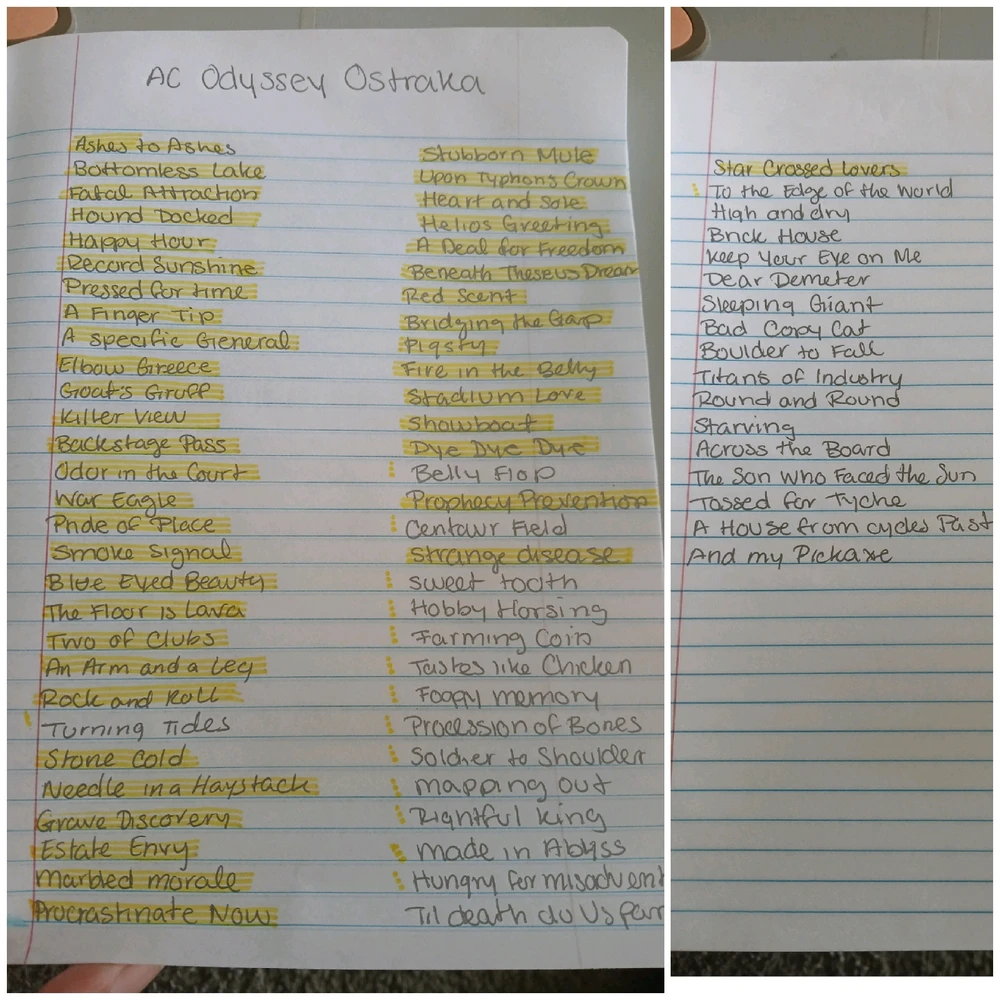 AC Odyssey Ostraka
Ashes to Ashes
Bottomless Lake
Fatal Attraction
Hound Docked
Happy Hour
Record Sunshine
Pressed for time
A Finger Tip
A specific General
Elbow Greece
Goat's Gruff
Killer View
Backstage Pass
Odor in the Court
War Eagle
Pride of Place
Smoke Signal
Blue Eyed Beauty
The Floor is Lava
Two of Clubs
An Arm and a Leg
Rock and Roll
Turning Tides
Stone Cold
Needle in a Haystack
Grave Discovery
Estate Envy
Marbled morale
Procrastinate Now
Stubborn Mule
Upon Typhons Crown
Heart and Sole
Helios Greeting
A Deal for Freedom
Beneath Theseus Dream
Red Scent
Bridging the Gap
Pigsty
Fire in the Belly
Stadium Love
Showboat
Dye Dye Dye
Belly Flop
Prophecy Prevention
Centaur Field
Strange disease
sweet tooth
Hobby Horsing
Farming Coin
Tastes like Chicken
Foggy memory
Procession of Bones
Soldier to Shoulder
mapping out
Rightful King
made in Abyss
Hungry for misadvent
Til death do Us par
Star Crossed Lovers
To the Edge of the World
High and dry
Brick House
Keep Your Eye on Me
Dear Demeter
Sleeping Giant
Bad Copy Cat
Boulder to Fall
Titans of Industry
Round and Round
Starving
Across the Board
The Son Who Faced the Sun
Tossed for Tyche
A House from cycles Past
And my Pickaxe